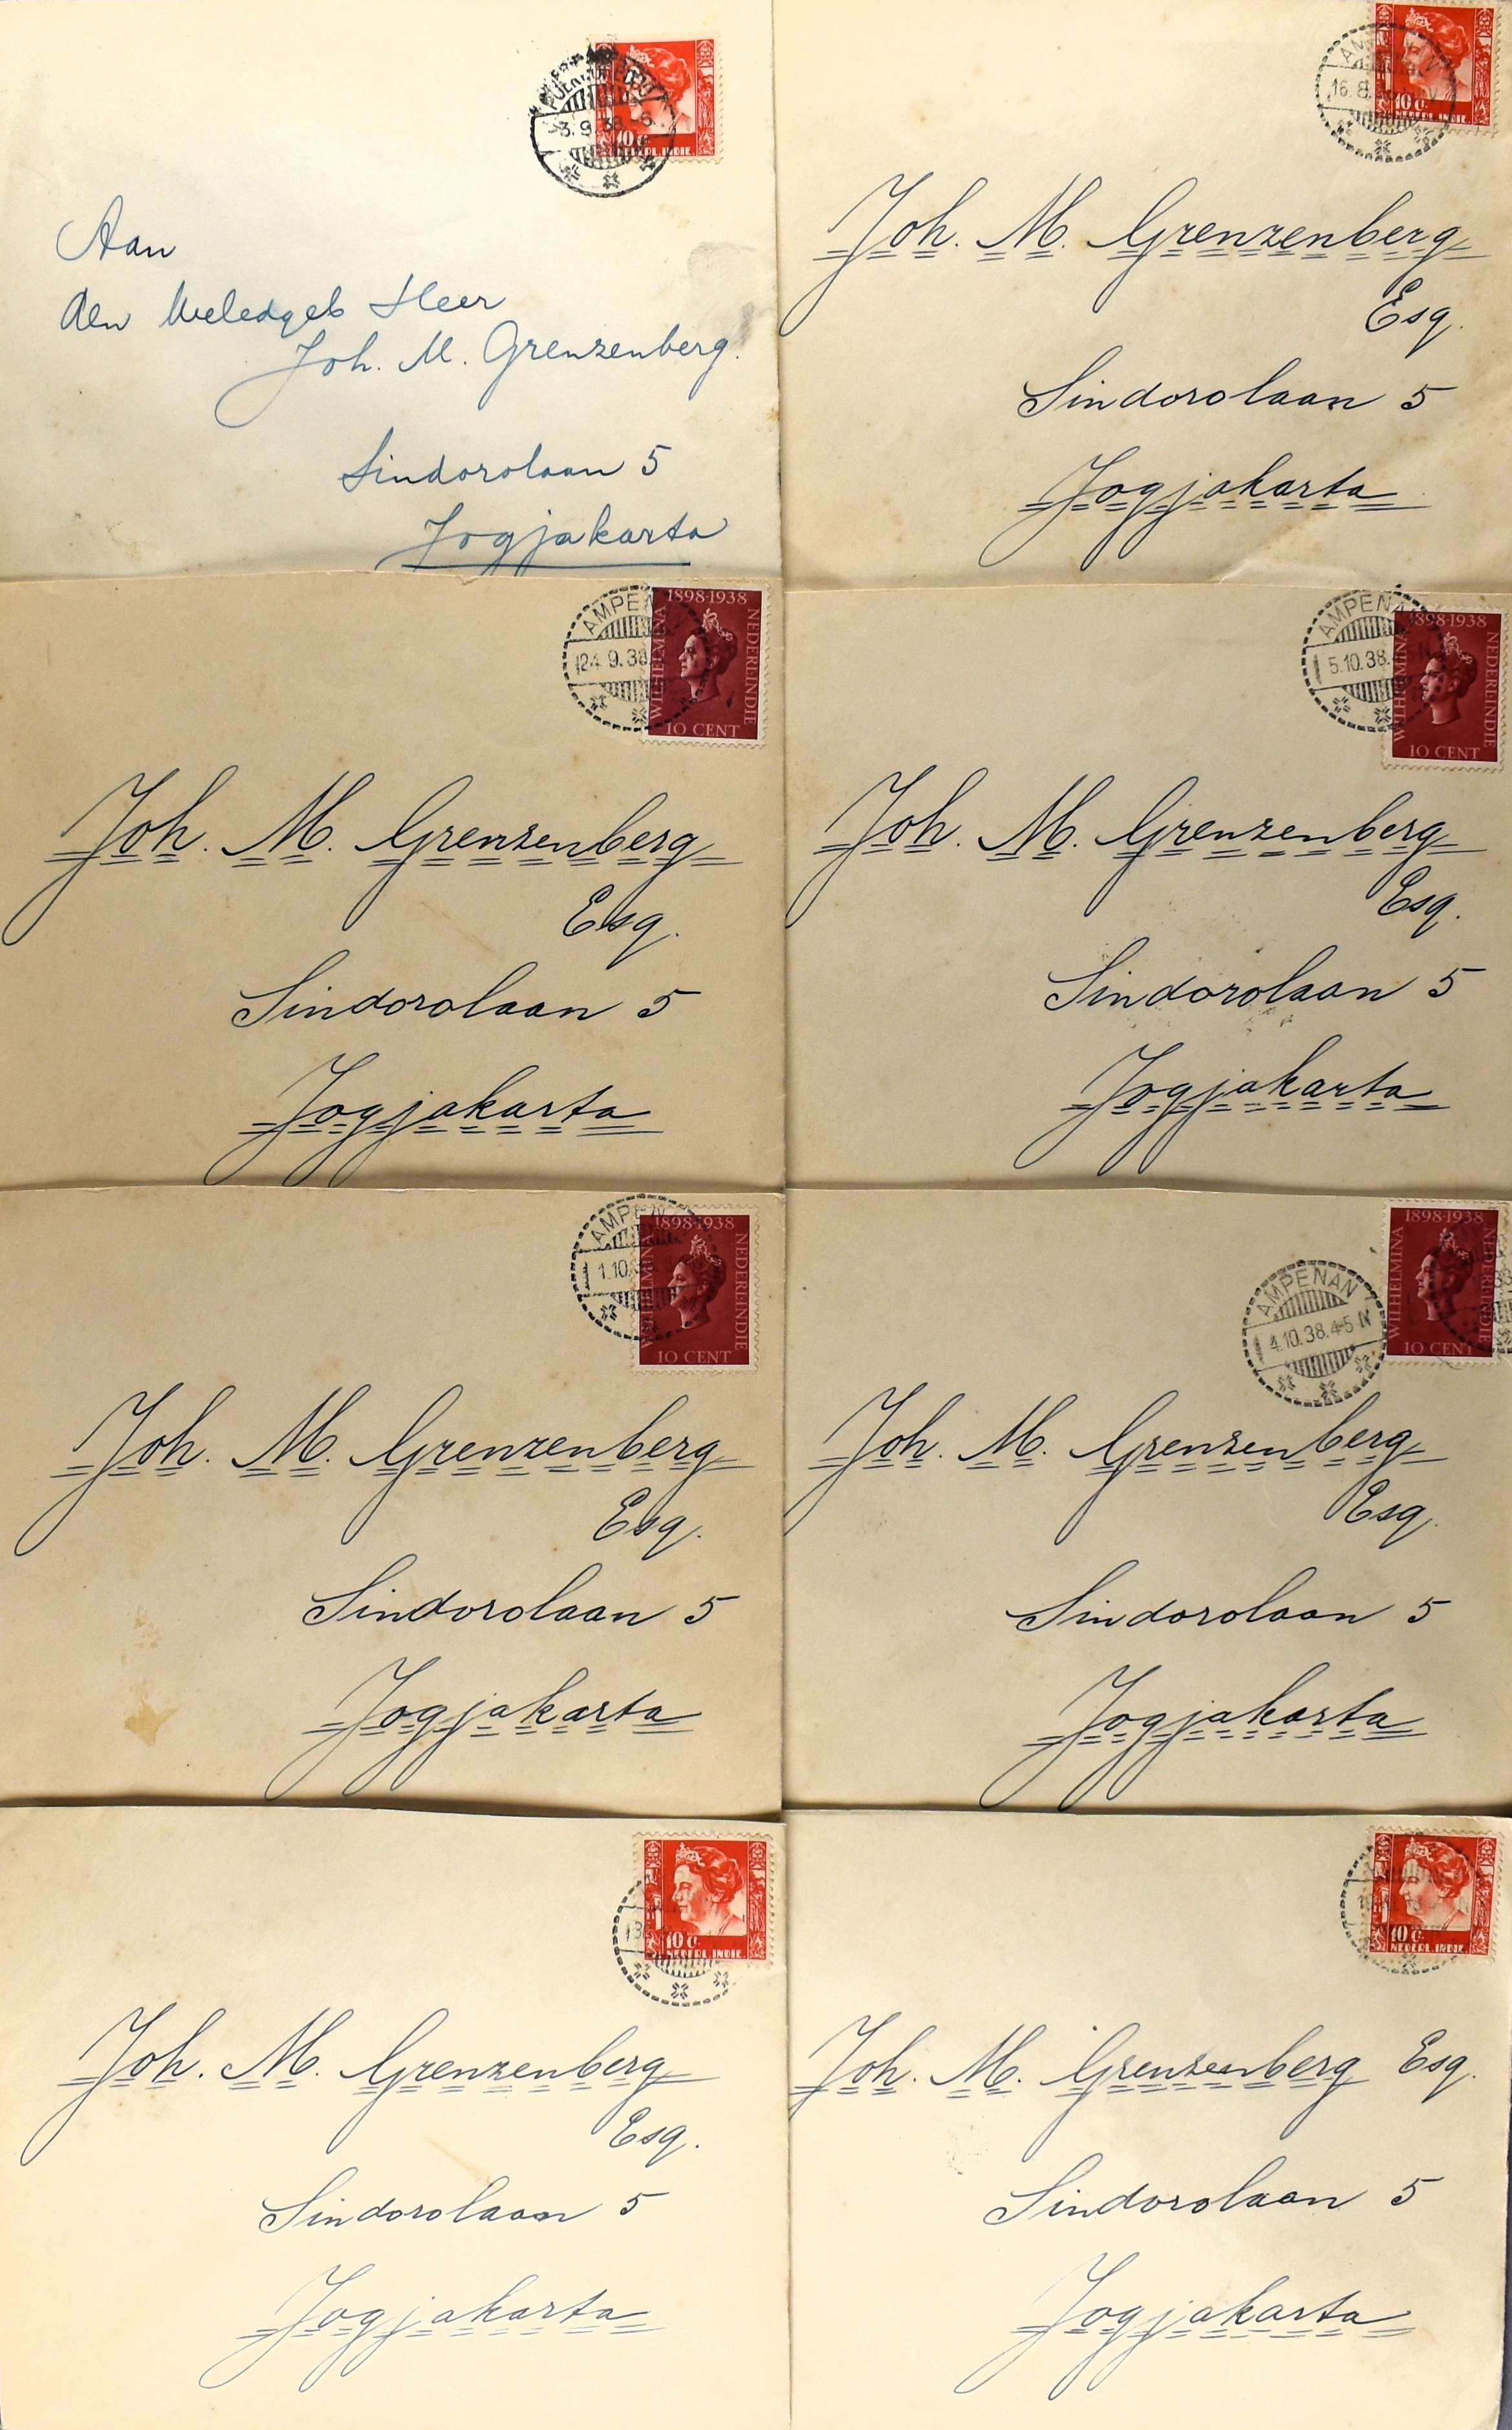 10 c.
NEDERL. INDIE.
3.9.38
Aan
den Weledgeb Heer
Joh. M. Grenzenberg.
Sindorolaan 5
Jogjakarta
AMPENAN
16.8.
10 c.
NEDERL. INDIE.
Joh. M. Grenzenberg
Esq.
Sindorolaan 5
Jogjakarta
AMPENAN
24.9.38
1898-1938
WILHELMINA
NEDERLINDIE
10 CENT
Joh. M. Grenzenberg
Esq.
Sindorolaan 5
Jogjakarta
AMPENAN
5.10.38.
1898-1938
WILHELMINA
NEDERLINDIE
10 CENT
Joh. M. Grenzenberg
Esq.
Sindorolaan 5
Jogjakarta
AMPEN
1.10.
1898-1938
WILHELMINA
NEDERLINDIE
10 CENT
Joh. M. Grenzenberg
Esq.
Sindorolaan 5
Jogjakarta
AMPENAN
4.10.38.4-5 N
1898-1938
WILHELMINA
NEDERLINDIE
10 CENT
Joh. M. Grenzenberg
Esq.
Sindorolaan 5
Jogjakarta
13
10 c.
NEDERL. INDIE.
Joh. M. Grenzenberg
Esq.
Sindorolaan 5
Jogjakarta
10 c.
NEDERL. INDIE.
Joh. M. Grenzenberg Esq.
Sindorolaan 5
Jogjakarta